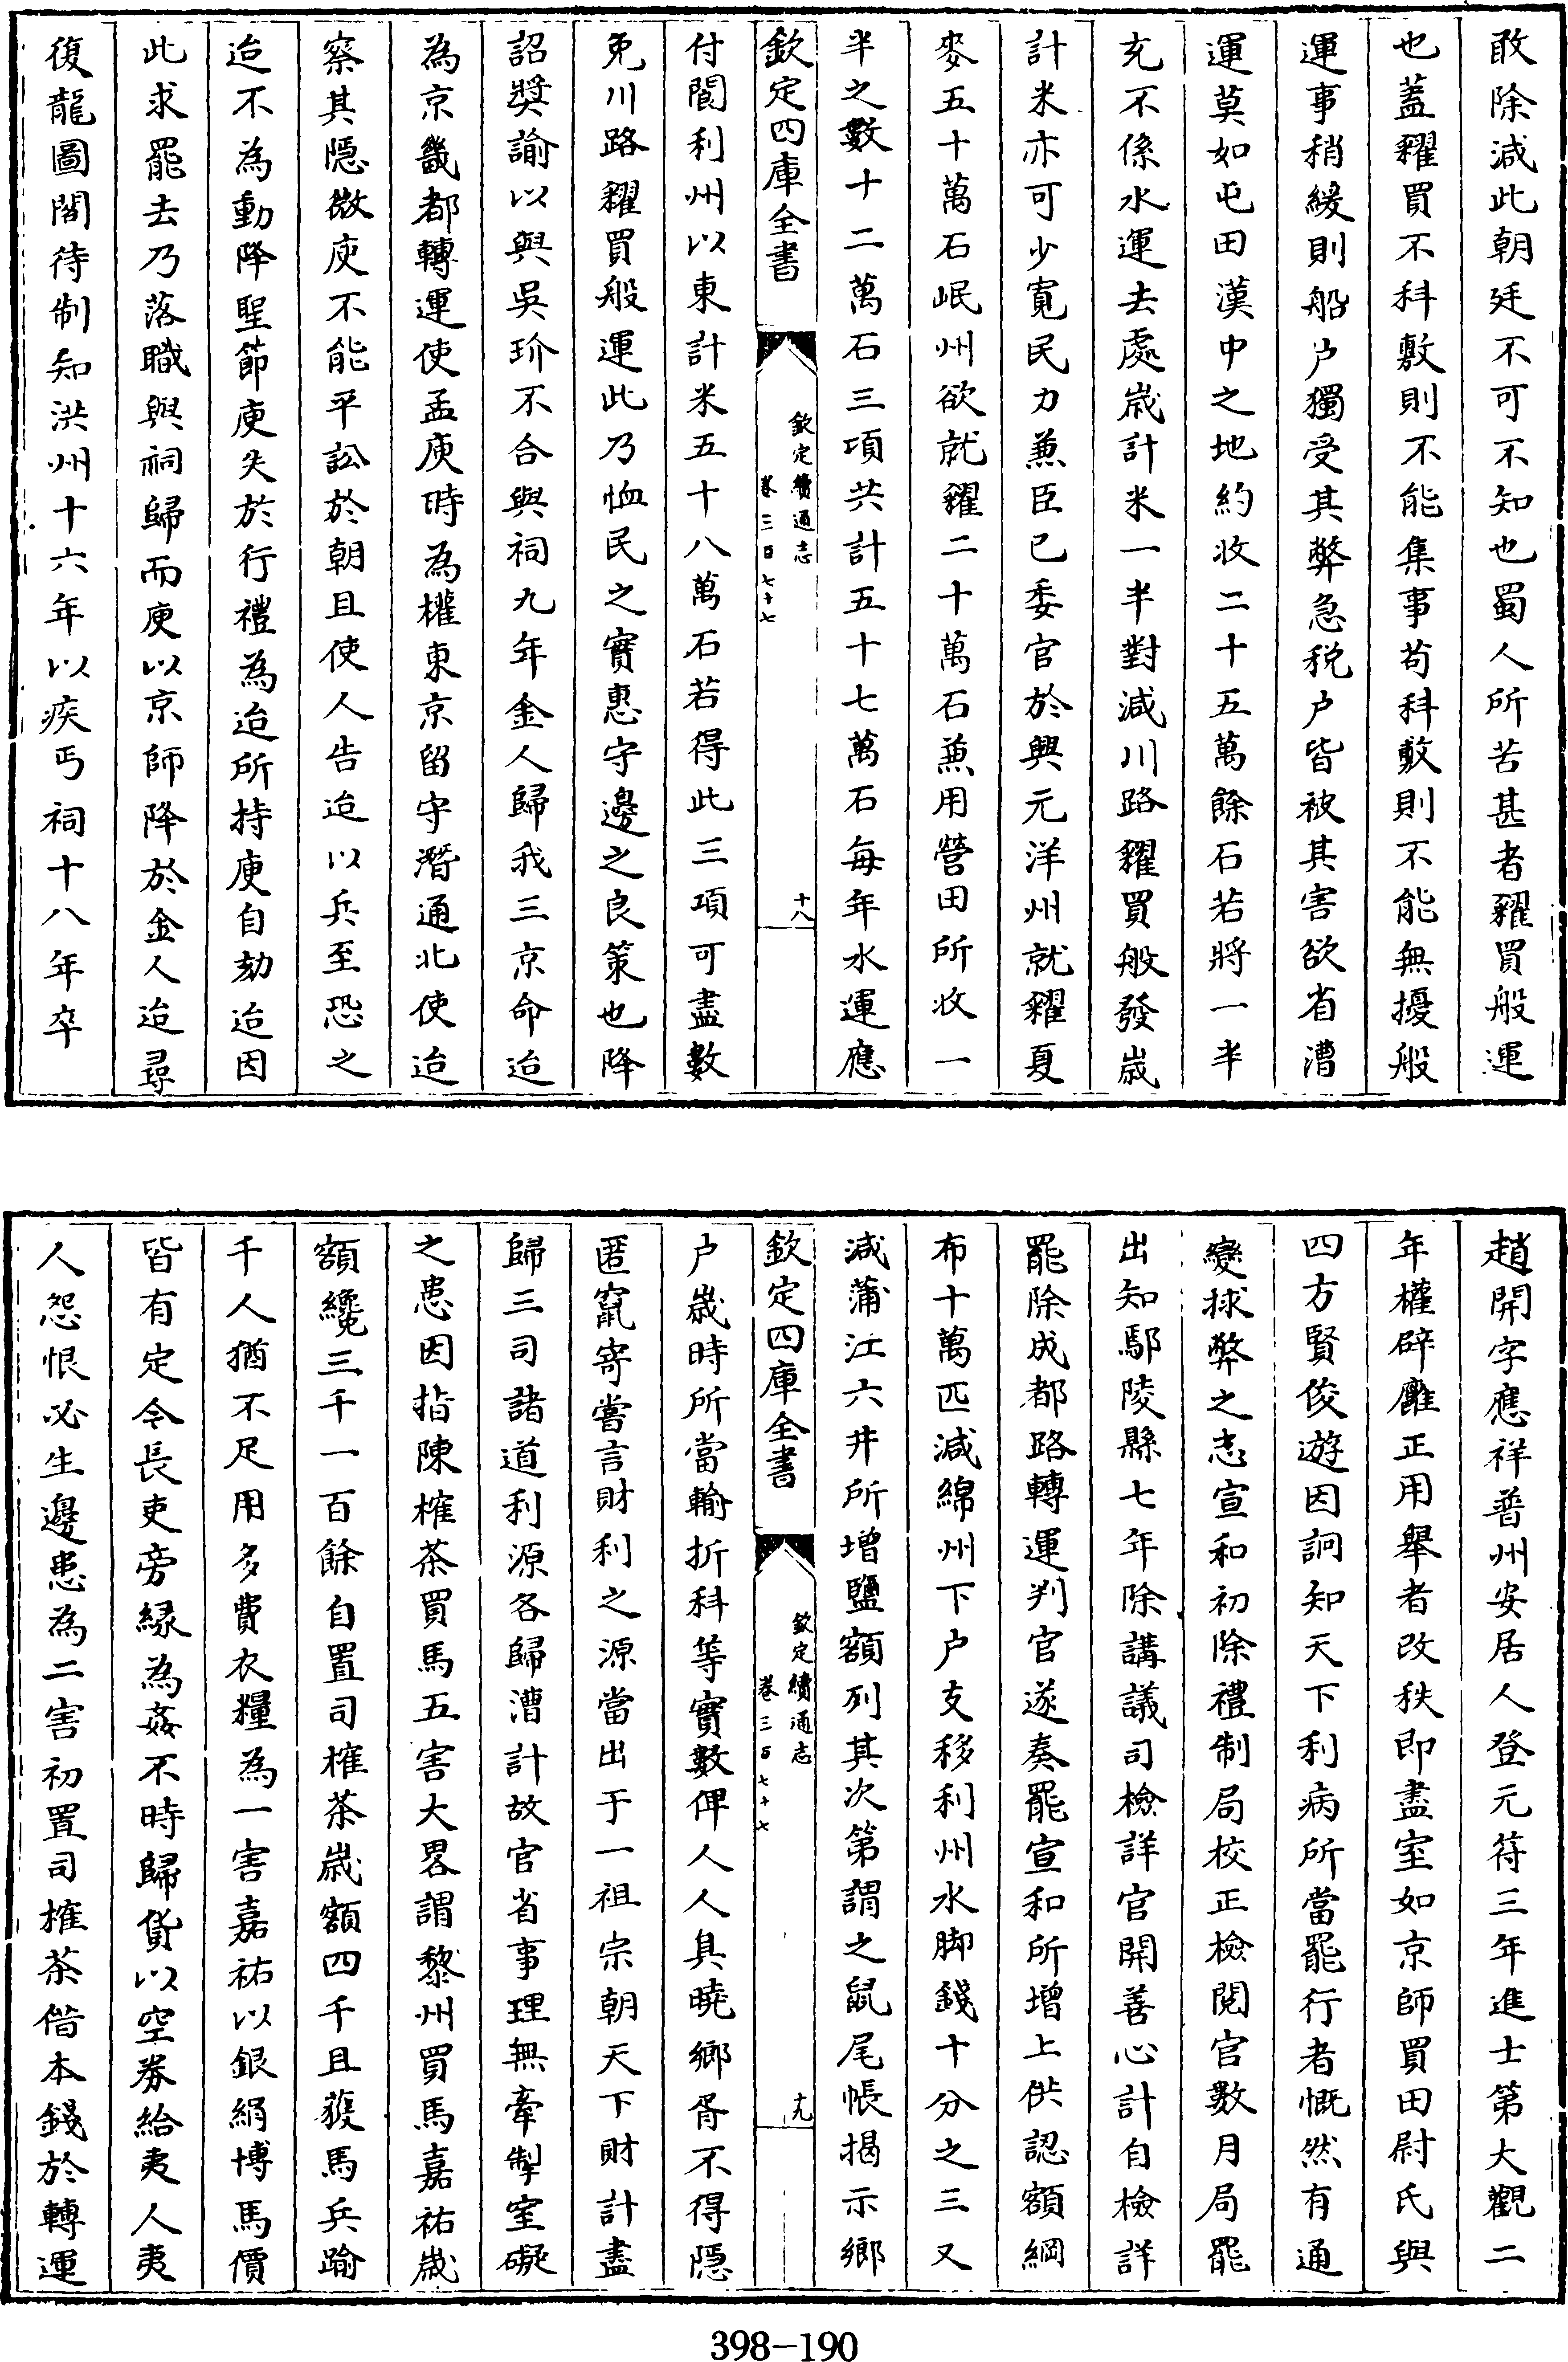 敢除減此朝廷不可不知也蜀人所苦甚者糴買般運
也蓋糴買不科敷則不能集事茍科敷則不能無擾般
運事稍緩則船户獨受其弊急税户皆被其害欲省漕
運莫如屯田漢中之地約收二十五萬餘石若將一半
充不係水運去處歳計米一半對減川路糴買般發歳
計米亦可少寛民力兼臣已委官於興元洋州就糴夏
麥五十萬石岷州欲就糴二十萬石兼用營田所收一
半之數十二萬石三項共計五十七萬石每年水運應
欽定四庫全書
欽定續通志
卷三百七十七
十八
付閬利州以東計米五十八萬石若得此三項可盡數
免川路糴買般運此乃恤民之實惠守邊之良策也降
詔奬諭以與吳玠不合與祠九年金人歸我三京命迨
為京畿都轉運使孟庾時為權東京留守潛通北使迨
察其隠微庾不能平訟於朝且使人告迨以兵至恐之
迨不為動降聖節庾失於行禮為迨所持庾自劾迨因
此求罷去乃落職與祠歸而庾以京師降於金人迨尋
復龍圖閣待制知洪州十六年以疾丐祠十八年卒
趙開字應祥普州安居人登元符三年進士第大觀二
年權辟廱正用舉者改秩即盡室如京師買田尉氏與
四方賢俊遊因詗知天下利病所當罷行者慨然有通
變捄弊之志宣和初除禮制局校正檢閲官數月局罷
出知鄢陵縣七年除講議司檢詳官開善心計自檢詳
罷除成都路轉運判官遂奏罷宣和所增上供認額綱
布十萬匹減綿州下户支移利州水脚錢十分之三又
減蒲江六井所增鹽額列其次第謂之鼠尾帳揭示鄉
欽定四庫全書
欽定續通志
卷三百七十七
十九
户歳時所當輸折科等實數俾人人具曉鄉胥不得隠
匿竄寄嘗言財利之源當出于一祖宗朝天下財計盡
歸三司諸道利源各歸漕計故官省事理無牽掣窒礙
之患因指陳榷茶買馬五害大畧謂黎州買馬嘉祐歳
額纔三千一百餘自置司榷茶歳額四千且獲馬兵踰
千人猶不足用多費衣糧為一害嘉祐以銀絹博馬價
皆有定令長吏旁縁為姦不時歸貨以空券給夷人夷
人怨恨必生邊患為二害初置司榷茶借本錢於轉運
398-190